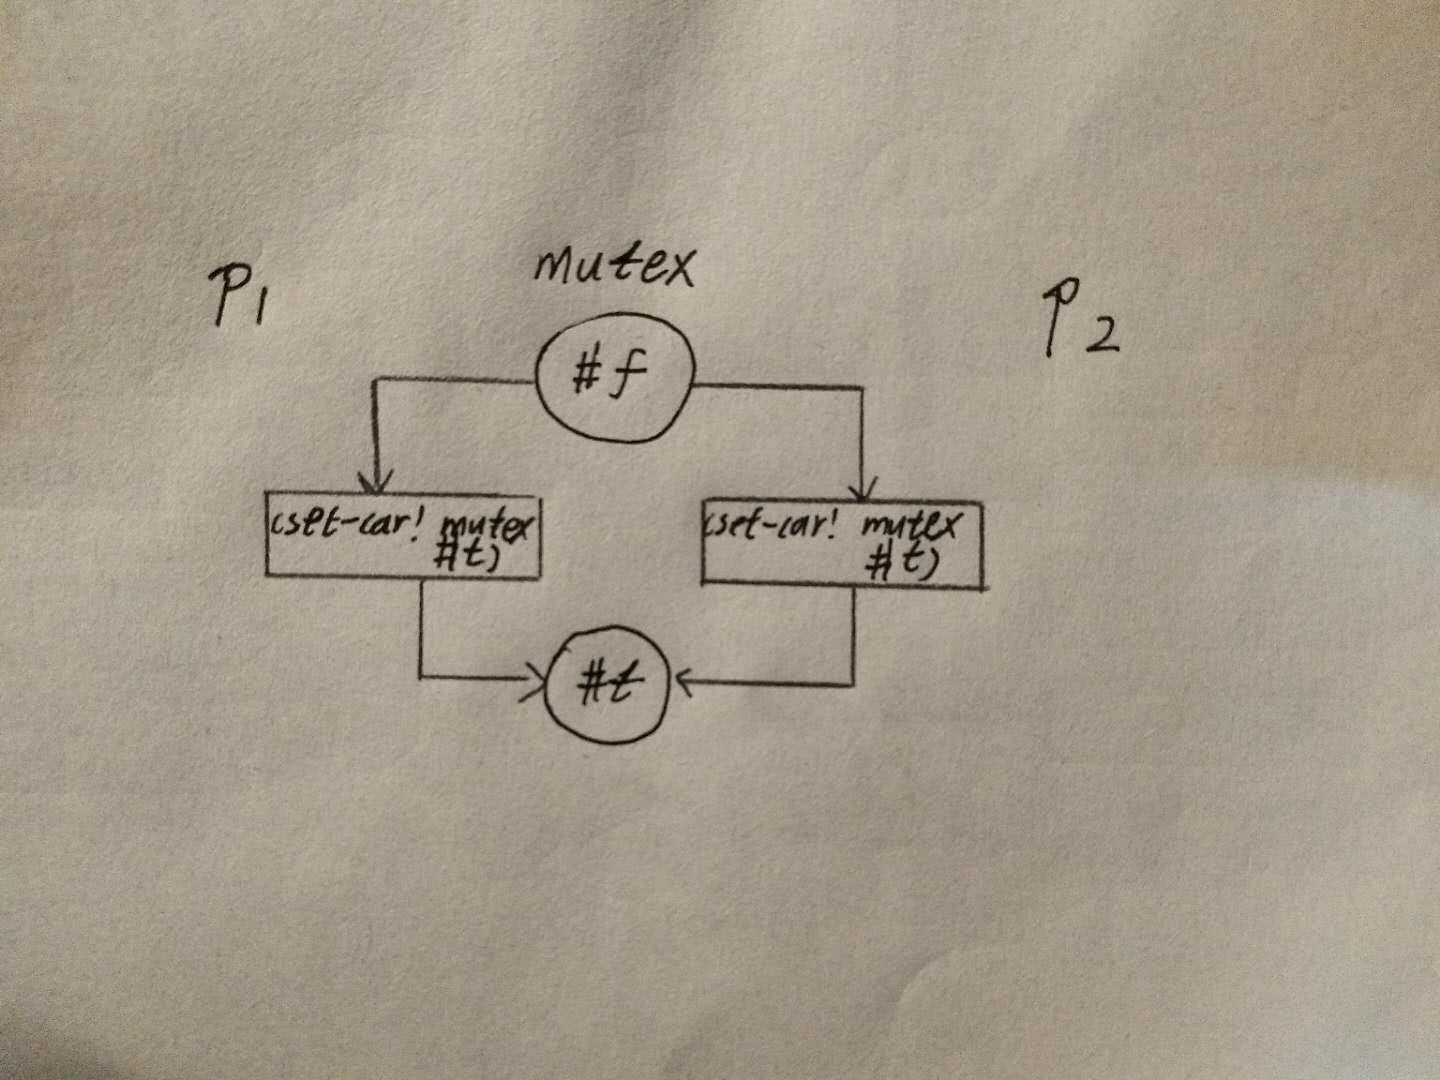 P1
mutex
P2
#f
(set-car! mutex
#t)
(set-car! mutex
#t)
#t